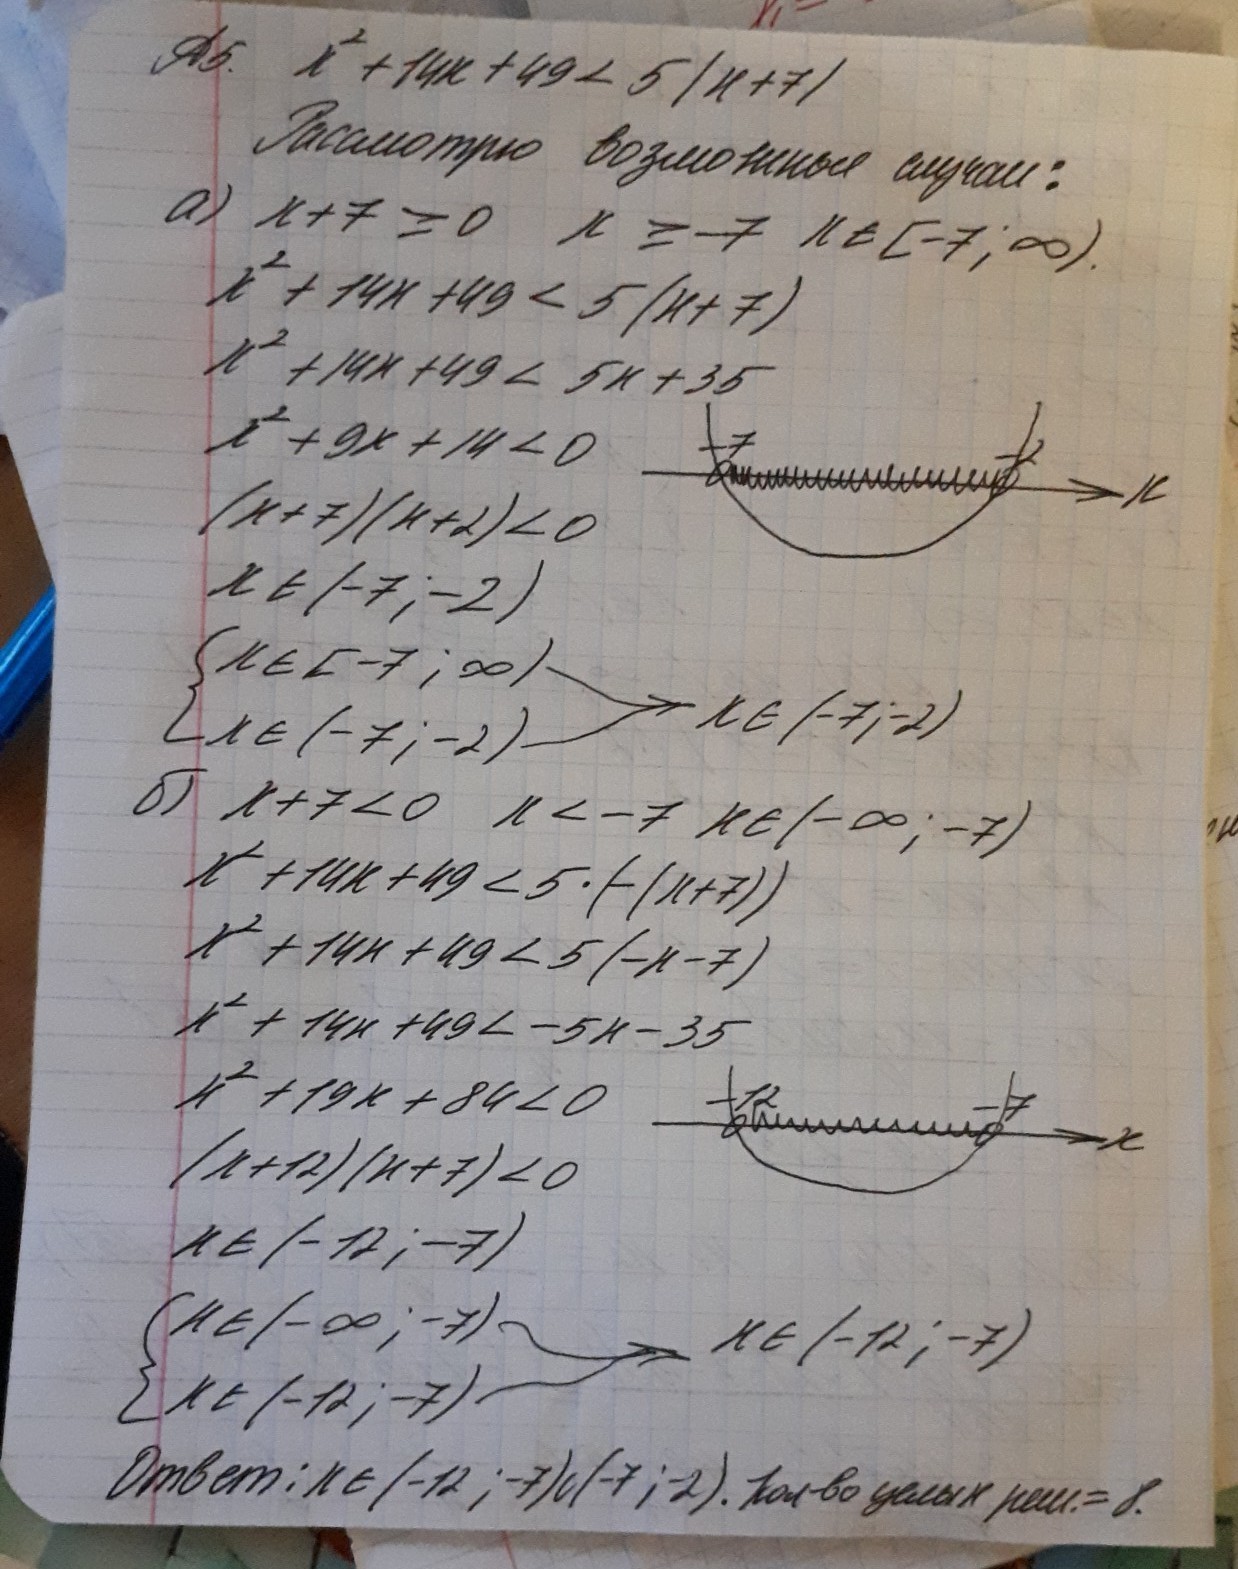 А5. x² + 14x + 49 < 5|x+7|
Рассмотрю возможные случаи:
а) x+7 ≥ 0 x ≥ -7 x ∈ [-7; ∞).
x² + 14x + 49 < 5(x+7)
x² + 14x + 49 < 5x + 35
x² + 9x + 14 < 0
-7 -2 x
(x+7)(x+2) < 0
x ∈ (-7; -2)
{ x ∈ [-7; ∞)
x ∈ (-7; -2) → x ∈ (-7; -2)
б) x+7 < 0 x < -7 x ∈ (-∞; -7)
x² + 14x + 49 < 5·(-(x+7))
x² + 14x + 49 < 5(-x-7)
x² + 14x + 49 < -5x - 35
x² + 19x + 84 < 0
-12 -7 x
(x+12)(x+7) < 0
x ∈ (-12; -7)
{ x ∈ (-∞; -7)
x ∈ (-12; -7) → x ∈ (-12; -7)
Ответ: x ∈ (-12; -7)∪(-7; -2). Кол-во целых реш. = 8.